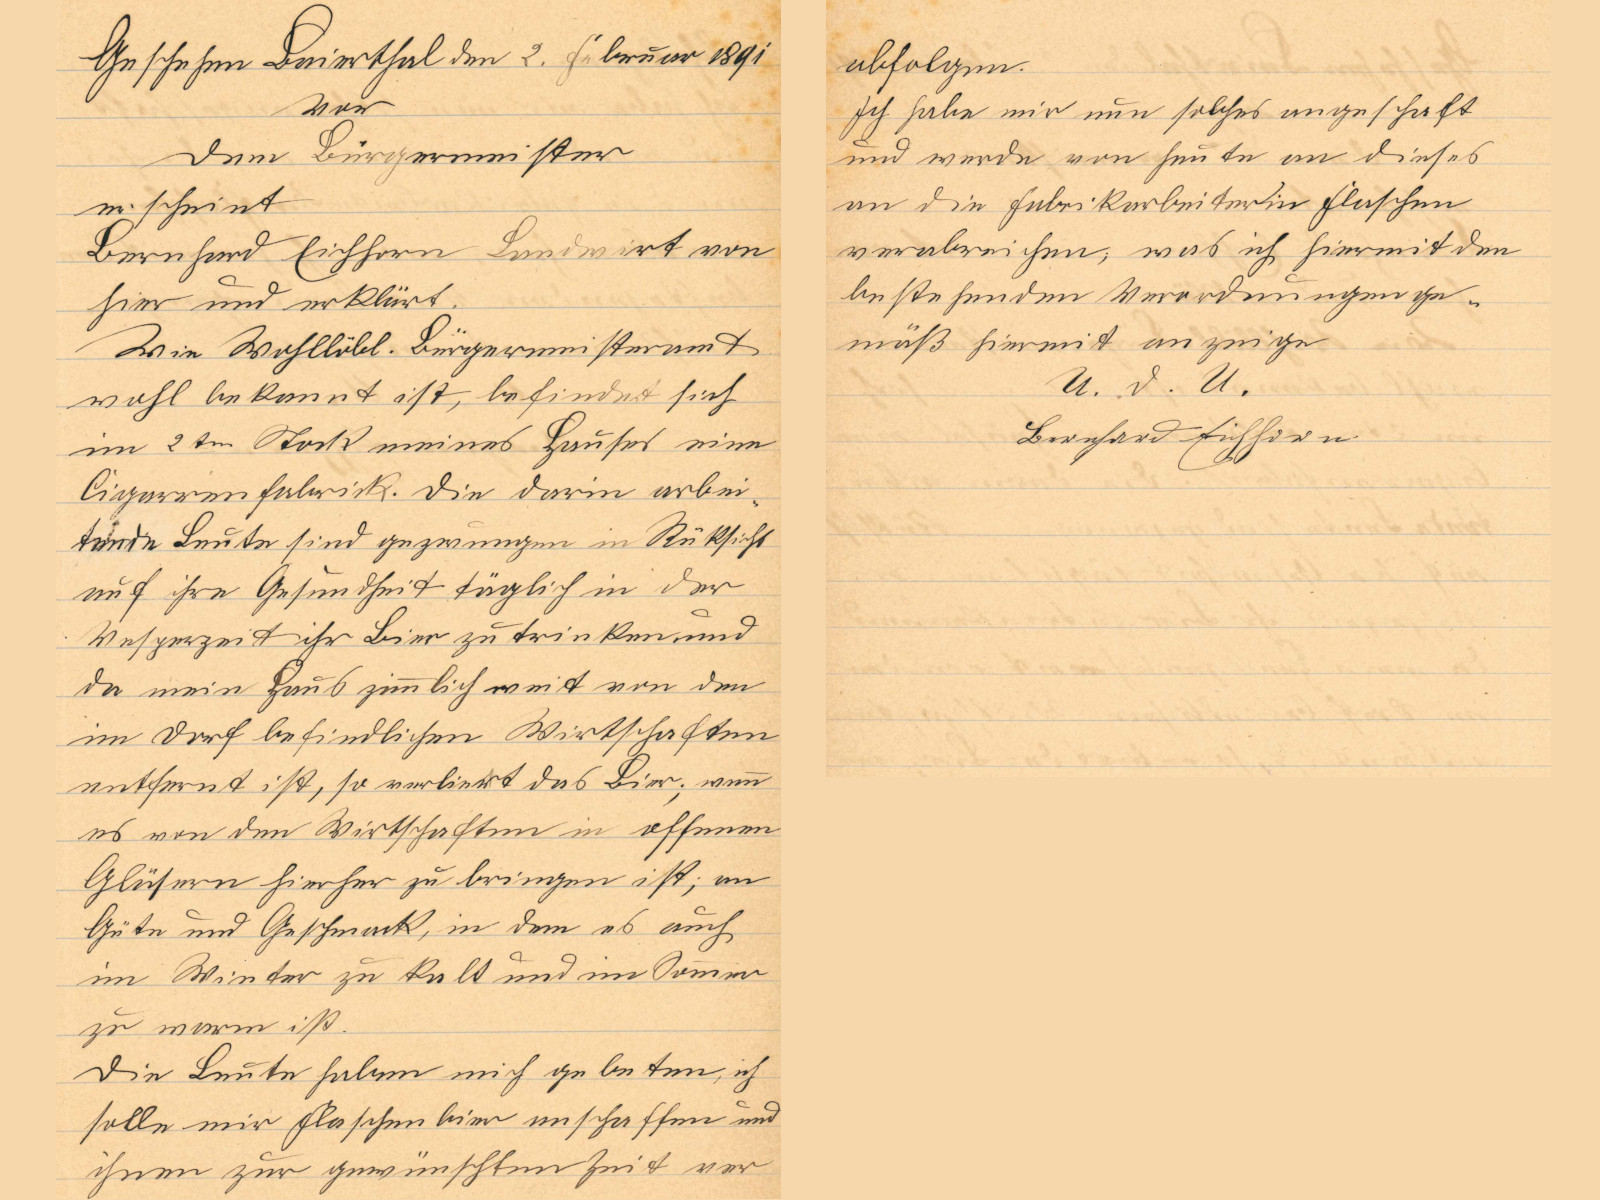 Geschehen Baierthal den 2. Februar 1891
vor
Dem Bürgermeister
erscheint
Bernhard Eichhorn Landwirt von
hier und erklärt.
Wie Wohllöbl. Bürgermeisteramt
wohl bekannt ist, befindet sich
im 2ten Stock meines Hauses eine
Cigarrenfabrick. Die darin arbei-
tende Leute sind gezwungen in Rüksicht
auf ihre Gesundheit täglich in der
Vesperzeit ihr Bier zu trinken und
da mein Haus zimlich weit von den
im Dorf befindlichen Wirtschaften
entfernt ist, so verliert das Bier; wenn
es von den Wirtschaften in offenen
Gläsern hierher zu bringen ist; an
Güte und Geschmack, in dem es auch
im Winter zu kalt und im Sommer
zu warm ist.
Die Leute haben mich gebeten, ich
solle mir Flaschenbier anschaffen und
ihnen zur gewünschten Zeit ver
abfolgen.
Ich habe mir nun solches angeschaft
und werde von heute an dieses
an die Fabrikarbeiter in Flaschen
verabreichen; was ich hiermit den
bestehenden Verordnungen ge-
mäß hiermit anzeige
U. d. U.
Bernhard Eichhorn